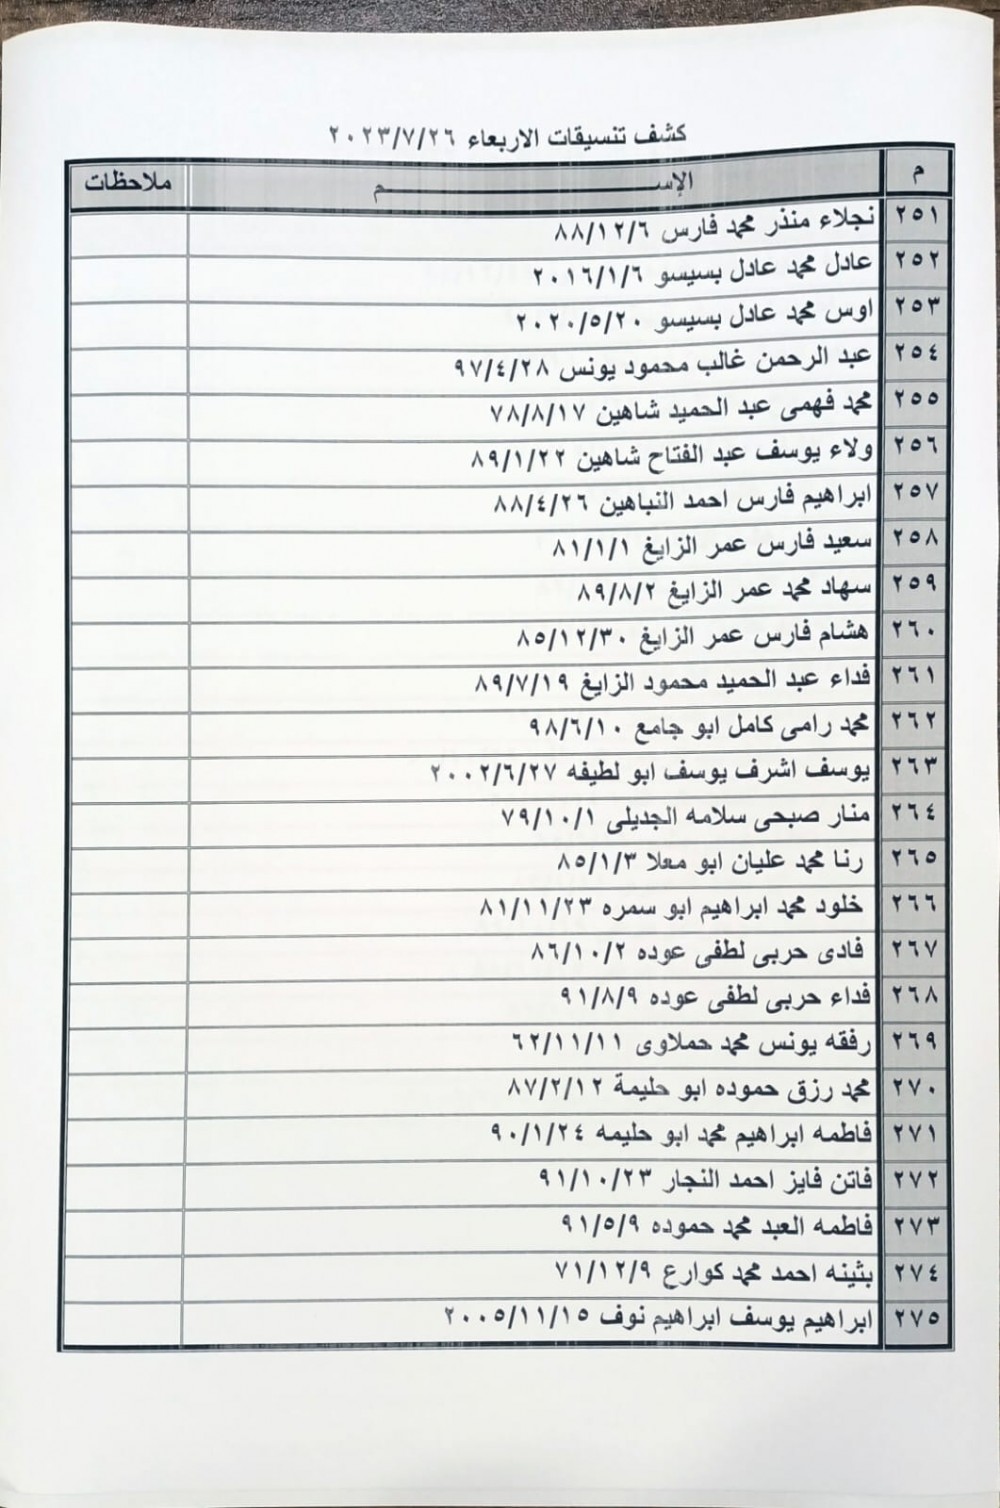 كشف تنسيقات الاربعاء ٢٠٢٣/٧/٢٦
م الإســـــــــم ملاحظات
٢٥١ نجلاء منذر محمد فارس ٨٨/١٢/٦
٢٥٢ عادل محمد عادل بسيسو ٢٠١٦/١/٦
٢٥٣ اوس محمد عادل بسيسو ٢٠٢٠/٥/٢٠
٢٥٤ عبد الرحمن غالب محمود يونس ٩٧/٤/٢٨
٢٥٥ محمد فهمى عبد الحميد شاهين ٧٨/٨/١٧
٢٥٦ ولاء يوسف عبد الفتاح شاهين ٨٩/١/٢٢
٢٥٧ ابراهيم فارس احمد النباهين ٨٨/٤/٢٦
٢٥٨ سعيد فارس عمر الزايغ ٨١/١/١
٢٥٩ سهاد محمد عمر الزايغ ٨٩/٨/٢
٢٦٠ هشام فارس عمر الزايغ ٨٥/١٢/٣٠
٢٦١ فداء عبد الحميد محمود الزايغ ٨٩/٧/١٩
٢٦٢ محمد رامى كامل ابو جامع ٩٨/٦/١٠
٢٦٣ يوسف اشرف يوسف ابو لطيفه ٢٠٠٢/٦/٢٧
٢٦٤ منار صبحى سلامه الجديلى ٧٩/١٠/١
٢٦٥ رنا محمد عليان ابو معلا ٨٥/١/٣
٢٦٦ خلود محمد ابراهيم ابو سمره ٨١/١١/٢٣
٢٦٧ فادى حربى لطفى عوده ٨٦/١٠/٢
٢٦٨ فداء حربى لطفى عوده ٩١/٨/٩
٢٦٩ رفقه يونس محمد حملاوى ٦٢/١١/١١
٢٧٠ محمد رزق حموده ابو حليمة ٨٧/٢/١٢
٢٧١ فاطمه ابراهيم محمد ابو حليمه ٩٠/١/٢٤
٢٧٢ فاتن فايز احمد النجار ٩١/١٠/٢٣
٢٧٣ فاطمه العبد محمد حموده ٩١/٥/٩
٢٧٤ بثينه احمد محمد كوارع ٧١/١٢/٩
٢٧٥ ابراهيم يوسف ابراهيم نوف ٢٠٠٥/١١/١٥